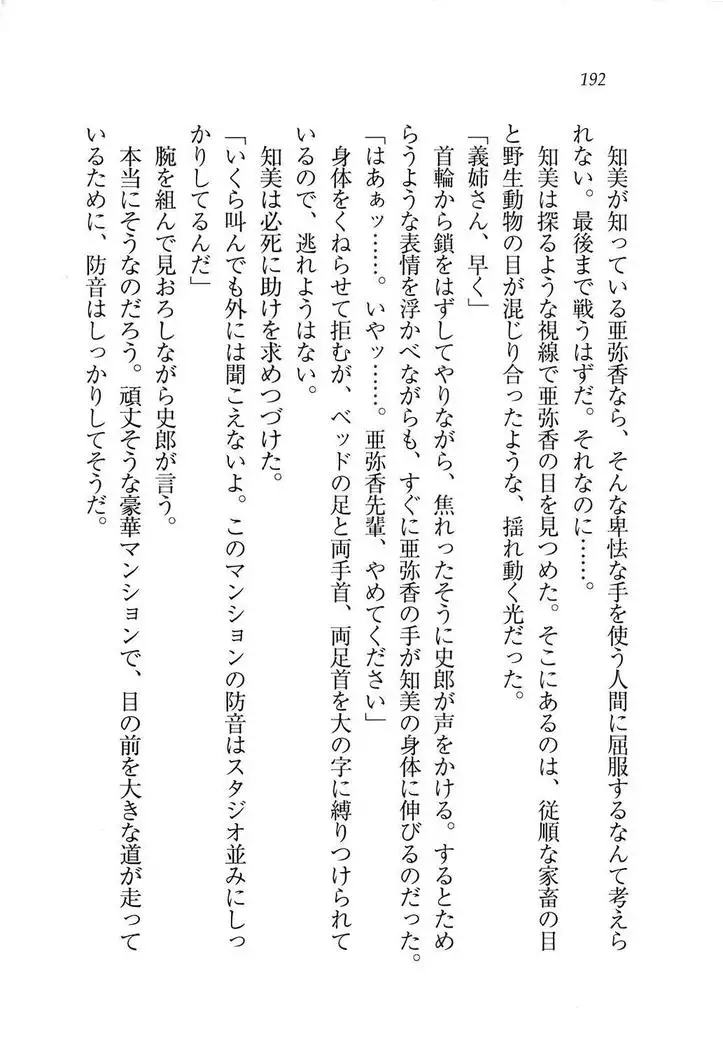 192
知美が知っている亜弥香なら、そんな卑怯な手を使う人間に屈服するなんて考えら
れない。最後まで戦うはずだ。それなのに……。
知美は探るような視線で亜弥香の目を見つめた。そこにあるのは、従順な家畜の目
と野生動物の目が混じり合ったような、揺れ動く光だった。
「義姉さん、早く」
首輪から鎖をはずしてやりながら、焦れったそうに史郎が声をかける。するとため
らうような表情を浮かべながらも、すぐに亜弥香の手が知美の身体に伸びるのだった。
「はあぁッ……。いやッ……。亜弥香先輩、やめてください」
身体をくねらせて拒むが、ベッドの足と両手首、両足首を大の字に縛りつけられて
いるので、逃れようはない。
知美は必死に助けを求めつづけた。
「いくら叫んでも外には聞こえないよ。このマンションの防音はスタジオ並みにしっ
かりしてるんだ」
腕を組んで見おろしながら史郎が言う。
本当にそうなのだろう。頑丈そうな豪華マンションで、目の前を大きな道が走って
いるために、防音はしっかりしてそうだ。